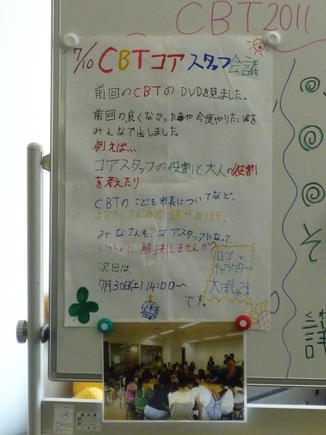 CBT2011
7/10 CBTコアスタッフ会議
前回のCBTのDVDを見ました.
前回の良くなかった事や今度やりたい事を
みんなで出しました。
例えば、、、
コアスタッフの役割と大人の役割
を考えたり
CBTのこども市長についてなど、
まだたくさんの課題があります。
みなさんも、コアスタッフになって、
いっしょに解決しませんか?
次回は
7月30日(土)14:00〜
です。
ロゴと
キャラクター
大ぼしゅう